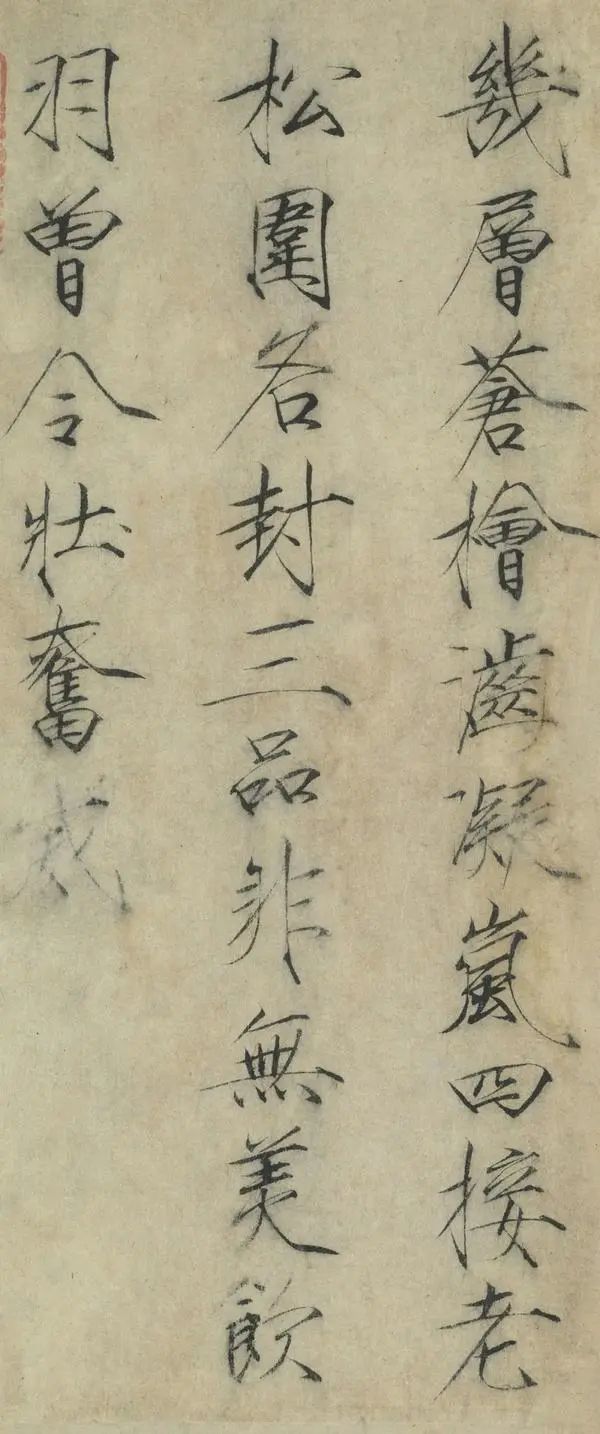 幾層蒼檜凝嵐四接老
松圍各封三品非無美飲
羽曾令壯奮